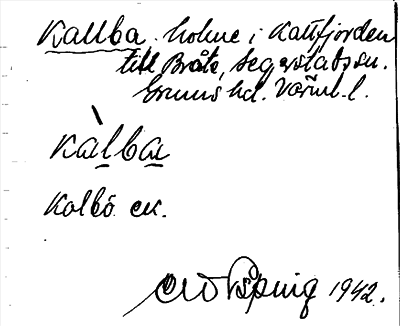 Kallba. holme i Kattfjorden
till Bråte, Segerstads sn.
Grums hd. Värml. l.
kàlba
Kalbö ek.
1942.